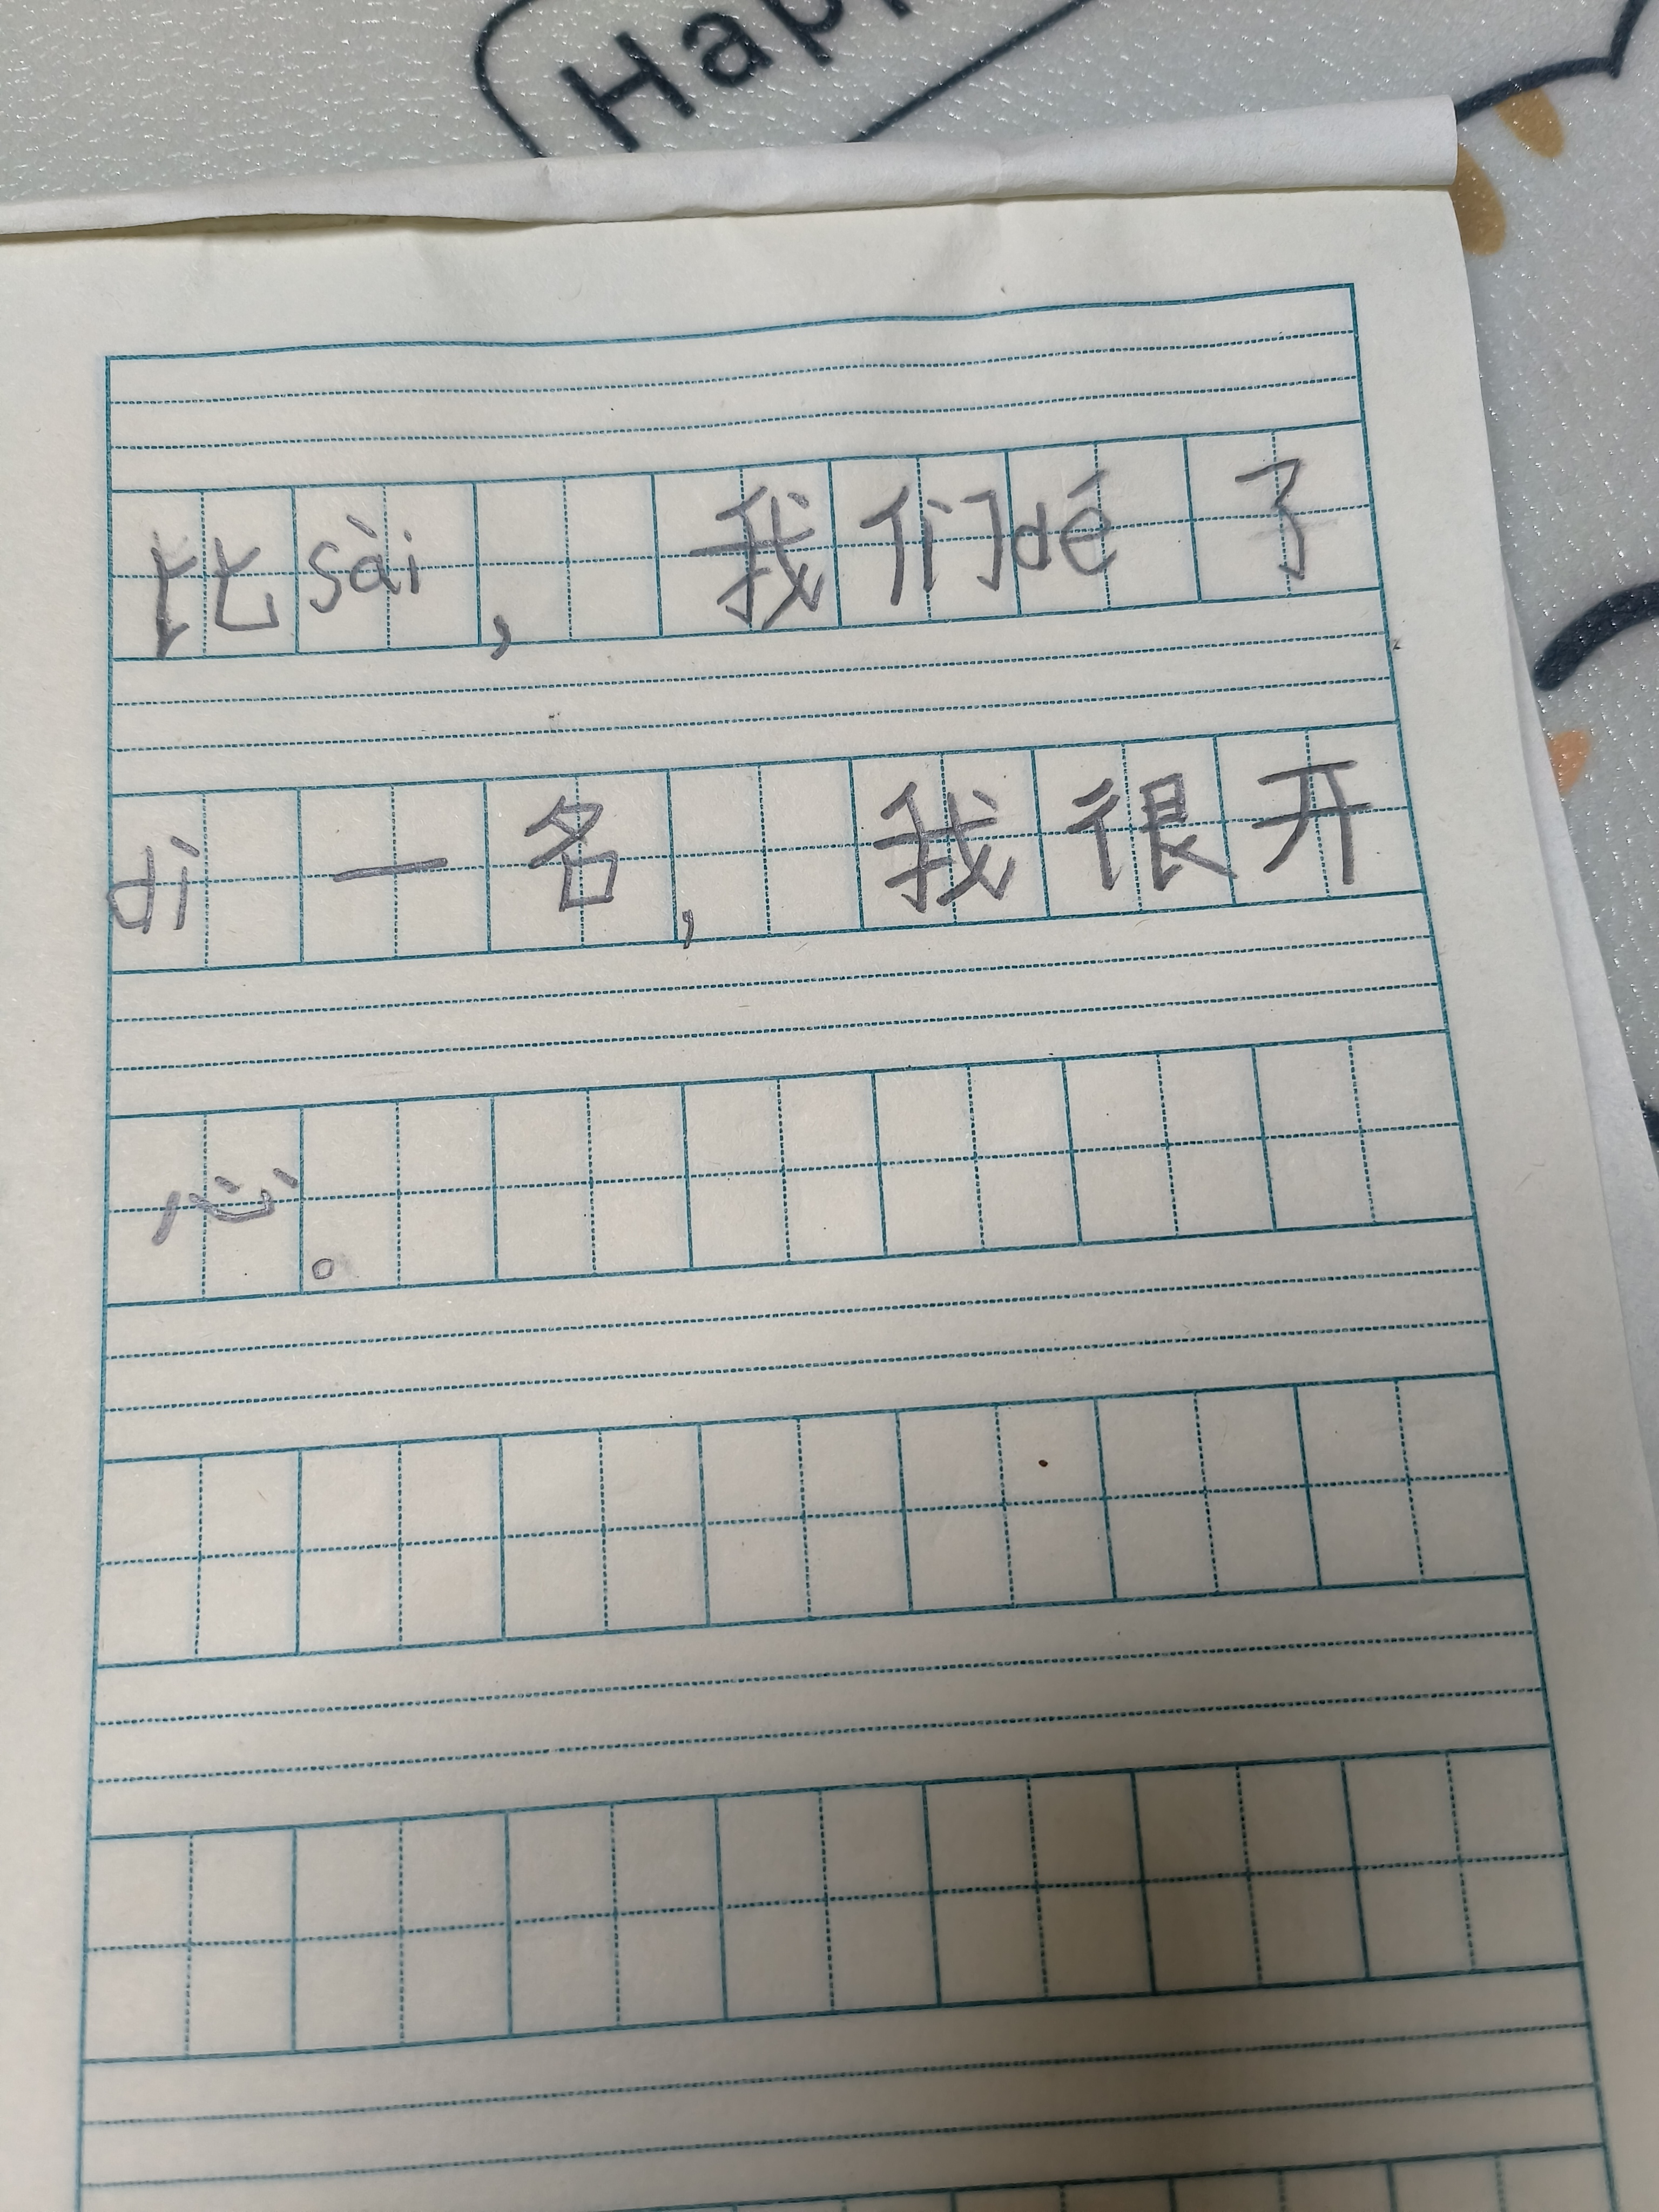 Hap
比sài，我们dé了
dì一名，我很开
心。